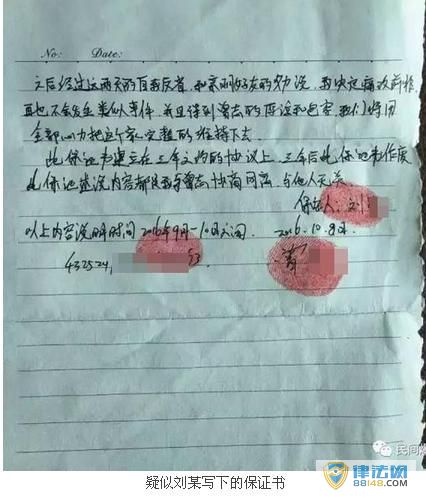 No:
Date:
之后经过这两天的自我反省，和亲朋好友的劝说，我决定痛改前非
再也不会发生类似事件，并且得到 的原谅和包容，我们将用
全部心力把这个家完整的维持下去。
此保证书建立在三年之内的协议上，三年后此保证书作废
此保证述说内容都是我与 协商同意，与他人无关
保证人：刘
以上内容说明时间2016年9月-10月之间. 2016.10.8日.
432524, 53.
民间
律法网
88148.COM
疑似刘某写下的保证书